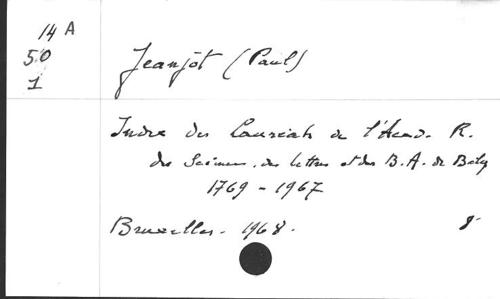 14 A
50
1
Jeanjot (Paul)
Index des Lauréats de l'Acad. R.
des Sciences, des lettres et des B.A. de Belg
1769 - 1967
Bruxelles. 1968. 8°